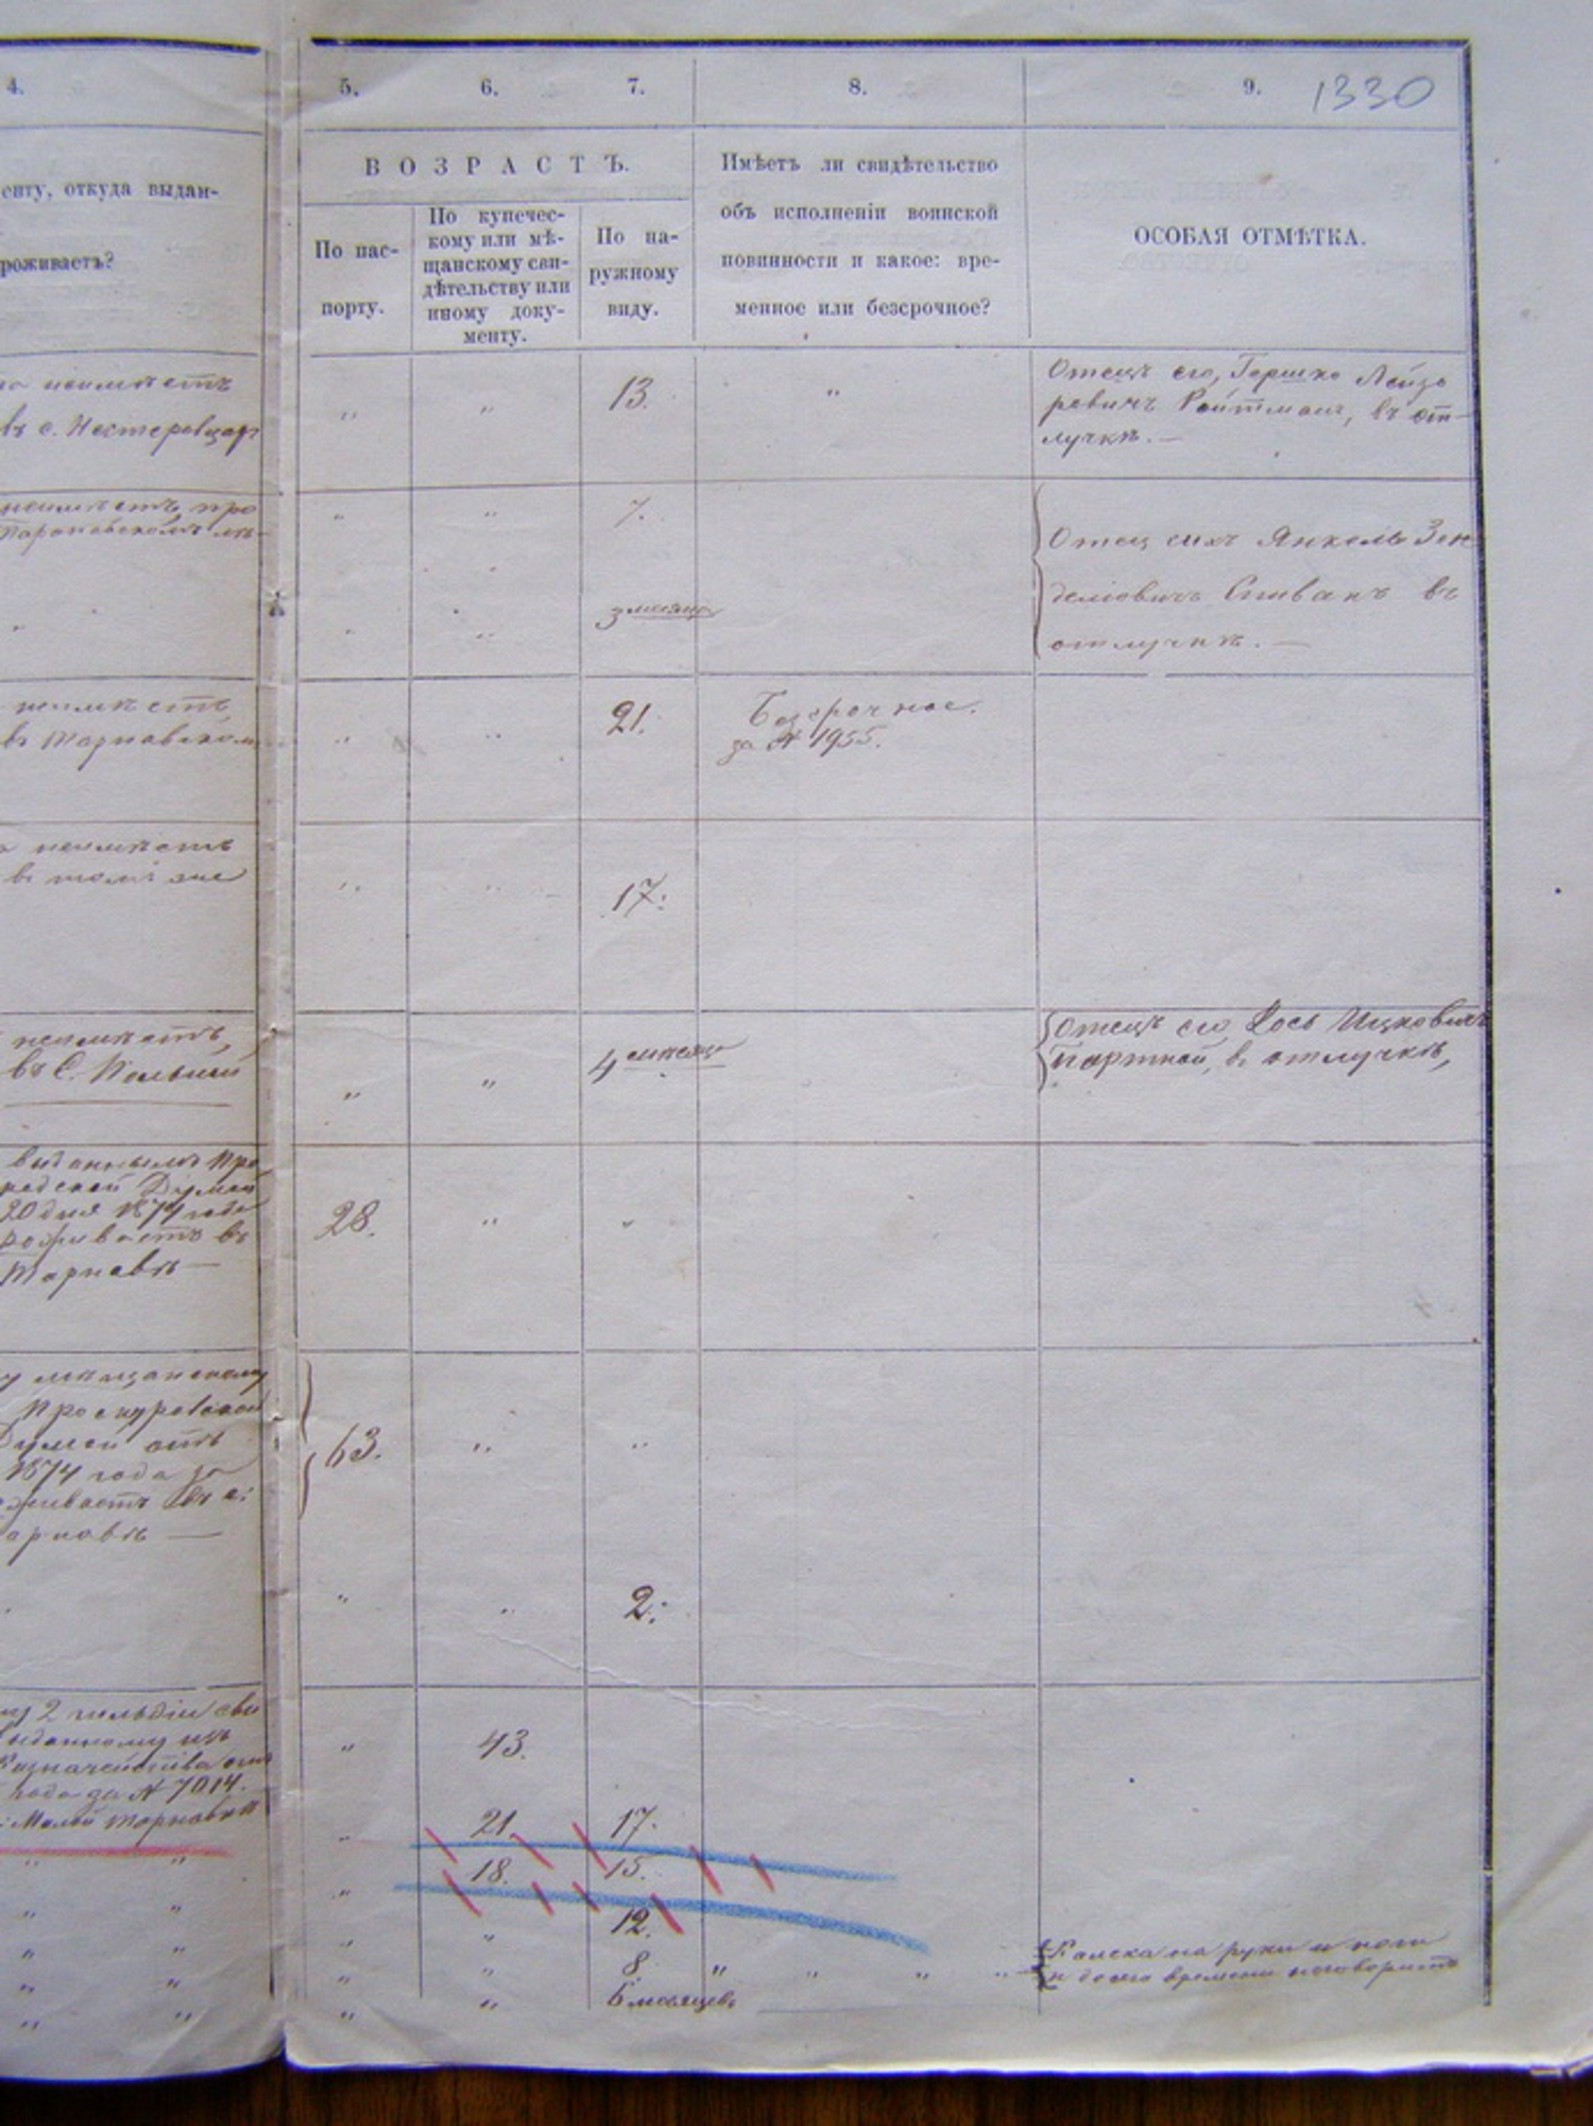 4.
5.
6.
7.
8.
9.
1330
енту, откуда выдан-
роживаетъ?
ВОЗРАСТЪ.
По пас-
порту.
По купечес-
кому или мѣ-
щанскому сви-
дѣтельству или
иному доку-
менту.
По на-
ружному
виду.
Имѣетъ ли свидѣтельство
объ исполненіи воинской
повинности и какое: вре-
менное или безсрочное?
ОСОБАЯ ОТМѢТКА.
неимѣетъ
въ с. Нестеровцахъ
" " 13. "
Отецъ его, Гершко Лейзо
ровичъ Ройтманъ, въ от-
лучкѣ. —
неимѣетъ, про
Тарновскомъ
" " 7.
" " 3 месяца
Отец ихъ Янкель Зен
деліовичъ Спивакъ въ
отлучкѣ. —
неимѣетъ,
въ Тарновском
" " 21.
Безсрочное.
за № 1955.
неимѣетъ
въ томъ же
" " 17.
неимѣетъ,
въ С.
" " 4 месяца
Отецъ его Іось Ицковичъ
Портной, въ отлучкѣ,
выданнымъ Про
родской Думой
20 дня 1874 года
роживаетъ въ
Тарновкѣ —
28. " "
мѣщанскому
Проскуровской
Думой отъ
1874 года за
живаетъ въ с.
арновкѣ —
63. " "
" " 2.
2 гильдіи сви
выданному изъ
Казначейства
года за № 7014.
Малой Тарновкѣ
" 43.
" 21. 17.
" " " 18. 15.
" " " " 12.
" " " " 8 " " " "
" " " " 6 месяцевъ
Калека на руки и ноги
и до сего времени неговоритъ